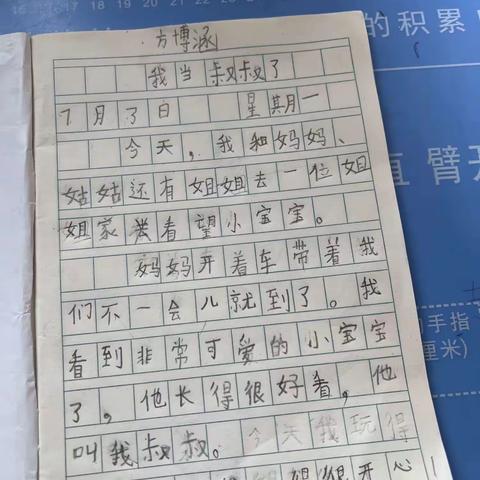 方博涵
我当叔叔了
7月了日 星期一
今天，我和妈妈、
姑姑还有姐姐去一位姐
姐家看望小宝宝。
妈妈开着车带着我
们不一会儿就到了。我
看到非常可爱的小宝宝
了，他长得很好看，他
叫我叔叔。今天我玩得
得很开心
的积累
直臂开
的手指
厘米)
15 16 17 18 19 20 21